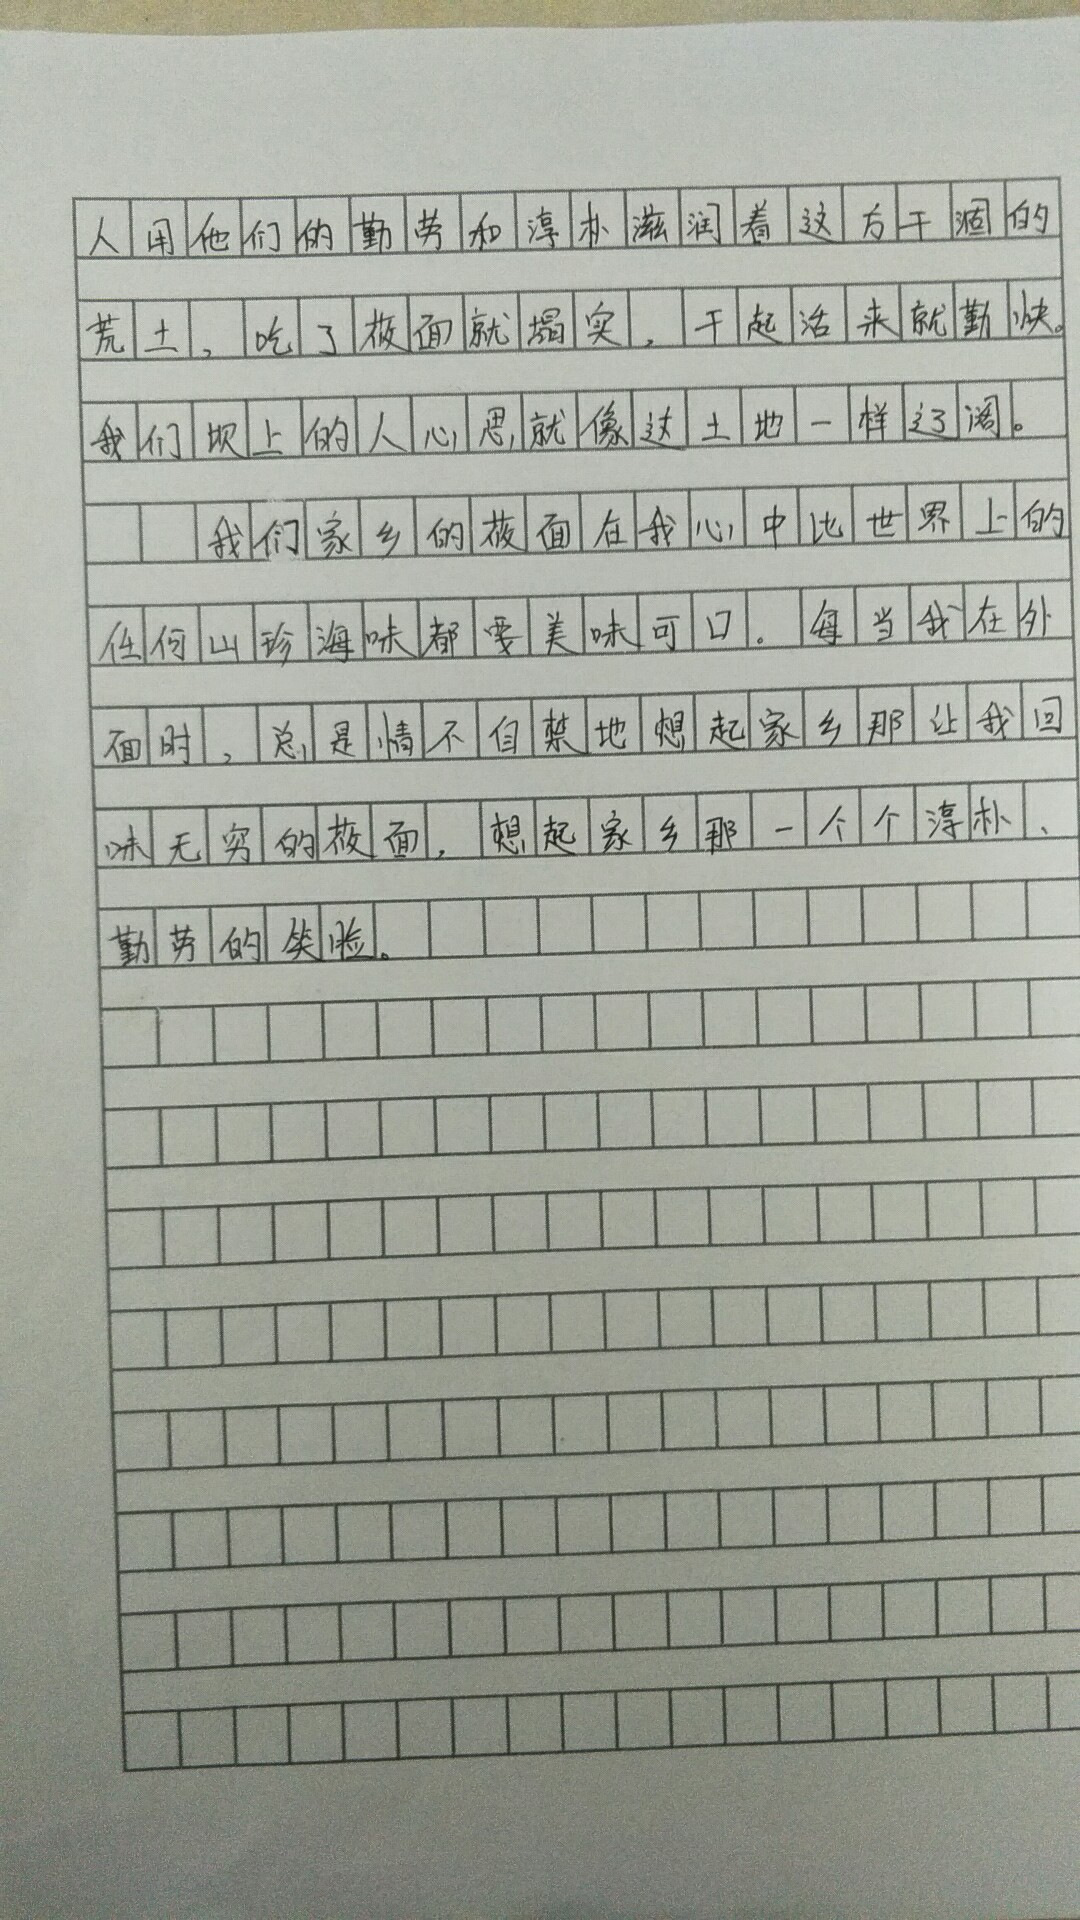 人用他们的勤劳和淳朴滋润着这方干涸的
荒土，吃了莜面就塌实，干起活来就勤快。
我们坝上的人心思就像这土地一样辽阔。
我们家乡的莜面在我心中比世界上的
任何山珍海味都要美味可口。每当我在外
面时，总是情不自禁地想起家乡那让我回
味无穷的莜面，想起家乡那一个个淳朴、
勤劳的笑脸。